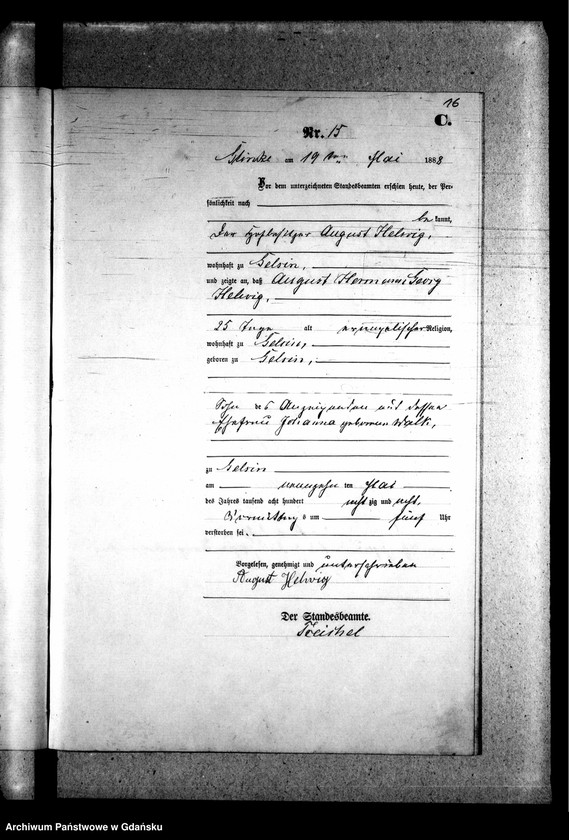 16
C.
Nr. 15
am 19 ten Mai 1888
Vor dem unterzeichneten Standesbeamten erschien heute, der Per-
sönlichkeit nach
be kannt,
der Hofbesitzer August Helwig,
wohnhaft zu
und zeigte an, daß August Hermann Georg
Helwig,
25 Tage alt evangelischer Religion,
wohnhaft zu
geboren zu
Sohn des Anzeigenden und dessen
Ehefrau Johanna geborenen Walk,
zu
am neunzehn ten Mai
des Jahres tausend acht hundert acht zig und acht,
Vormittag s um fünf Uhr
verstorben sei.
Vorgelesen, genehmigt und unterschrieben
August Helwig
Der Standesbeamte.
Archiwum Państwowe w Gdańsku